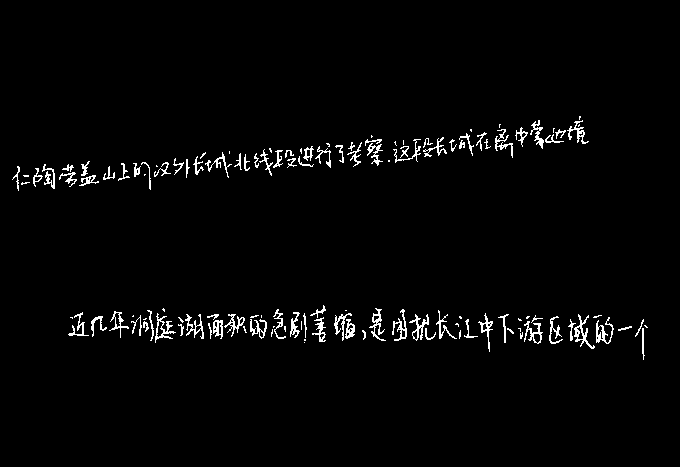 仁陶劳盖山上的汉外长城北线段进行了考察.这段长城在离中蒙边境
近几年洞庭湖面积的急剧萎缩,是困扰长江中下游区域的一个